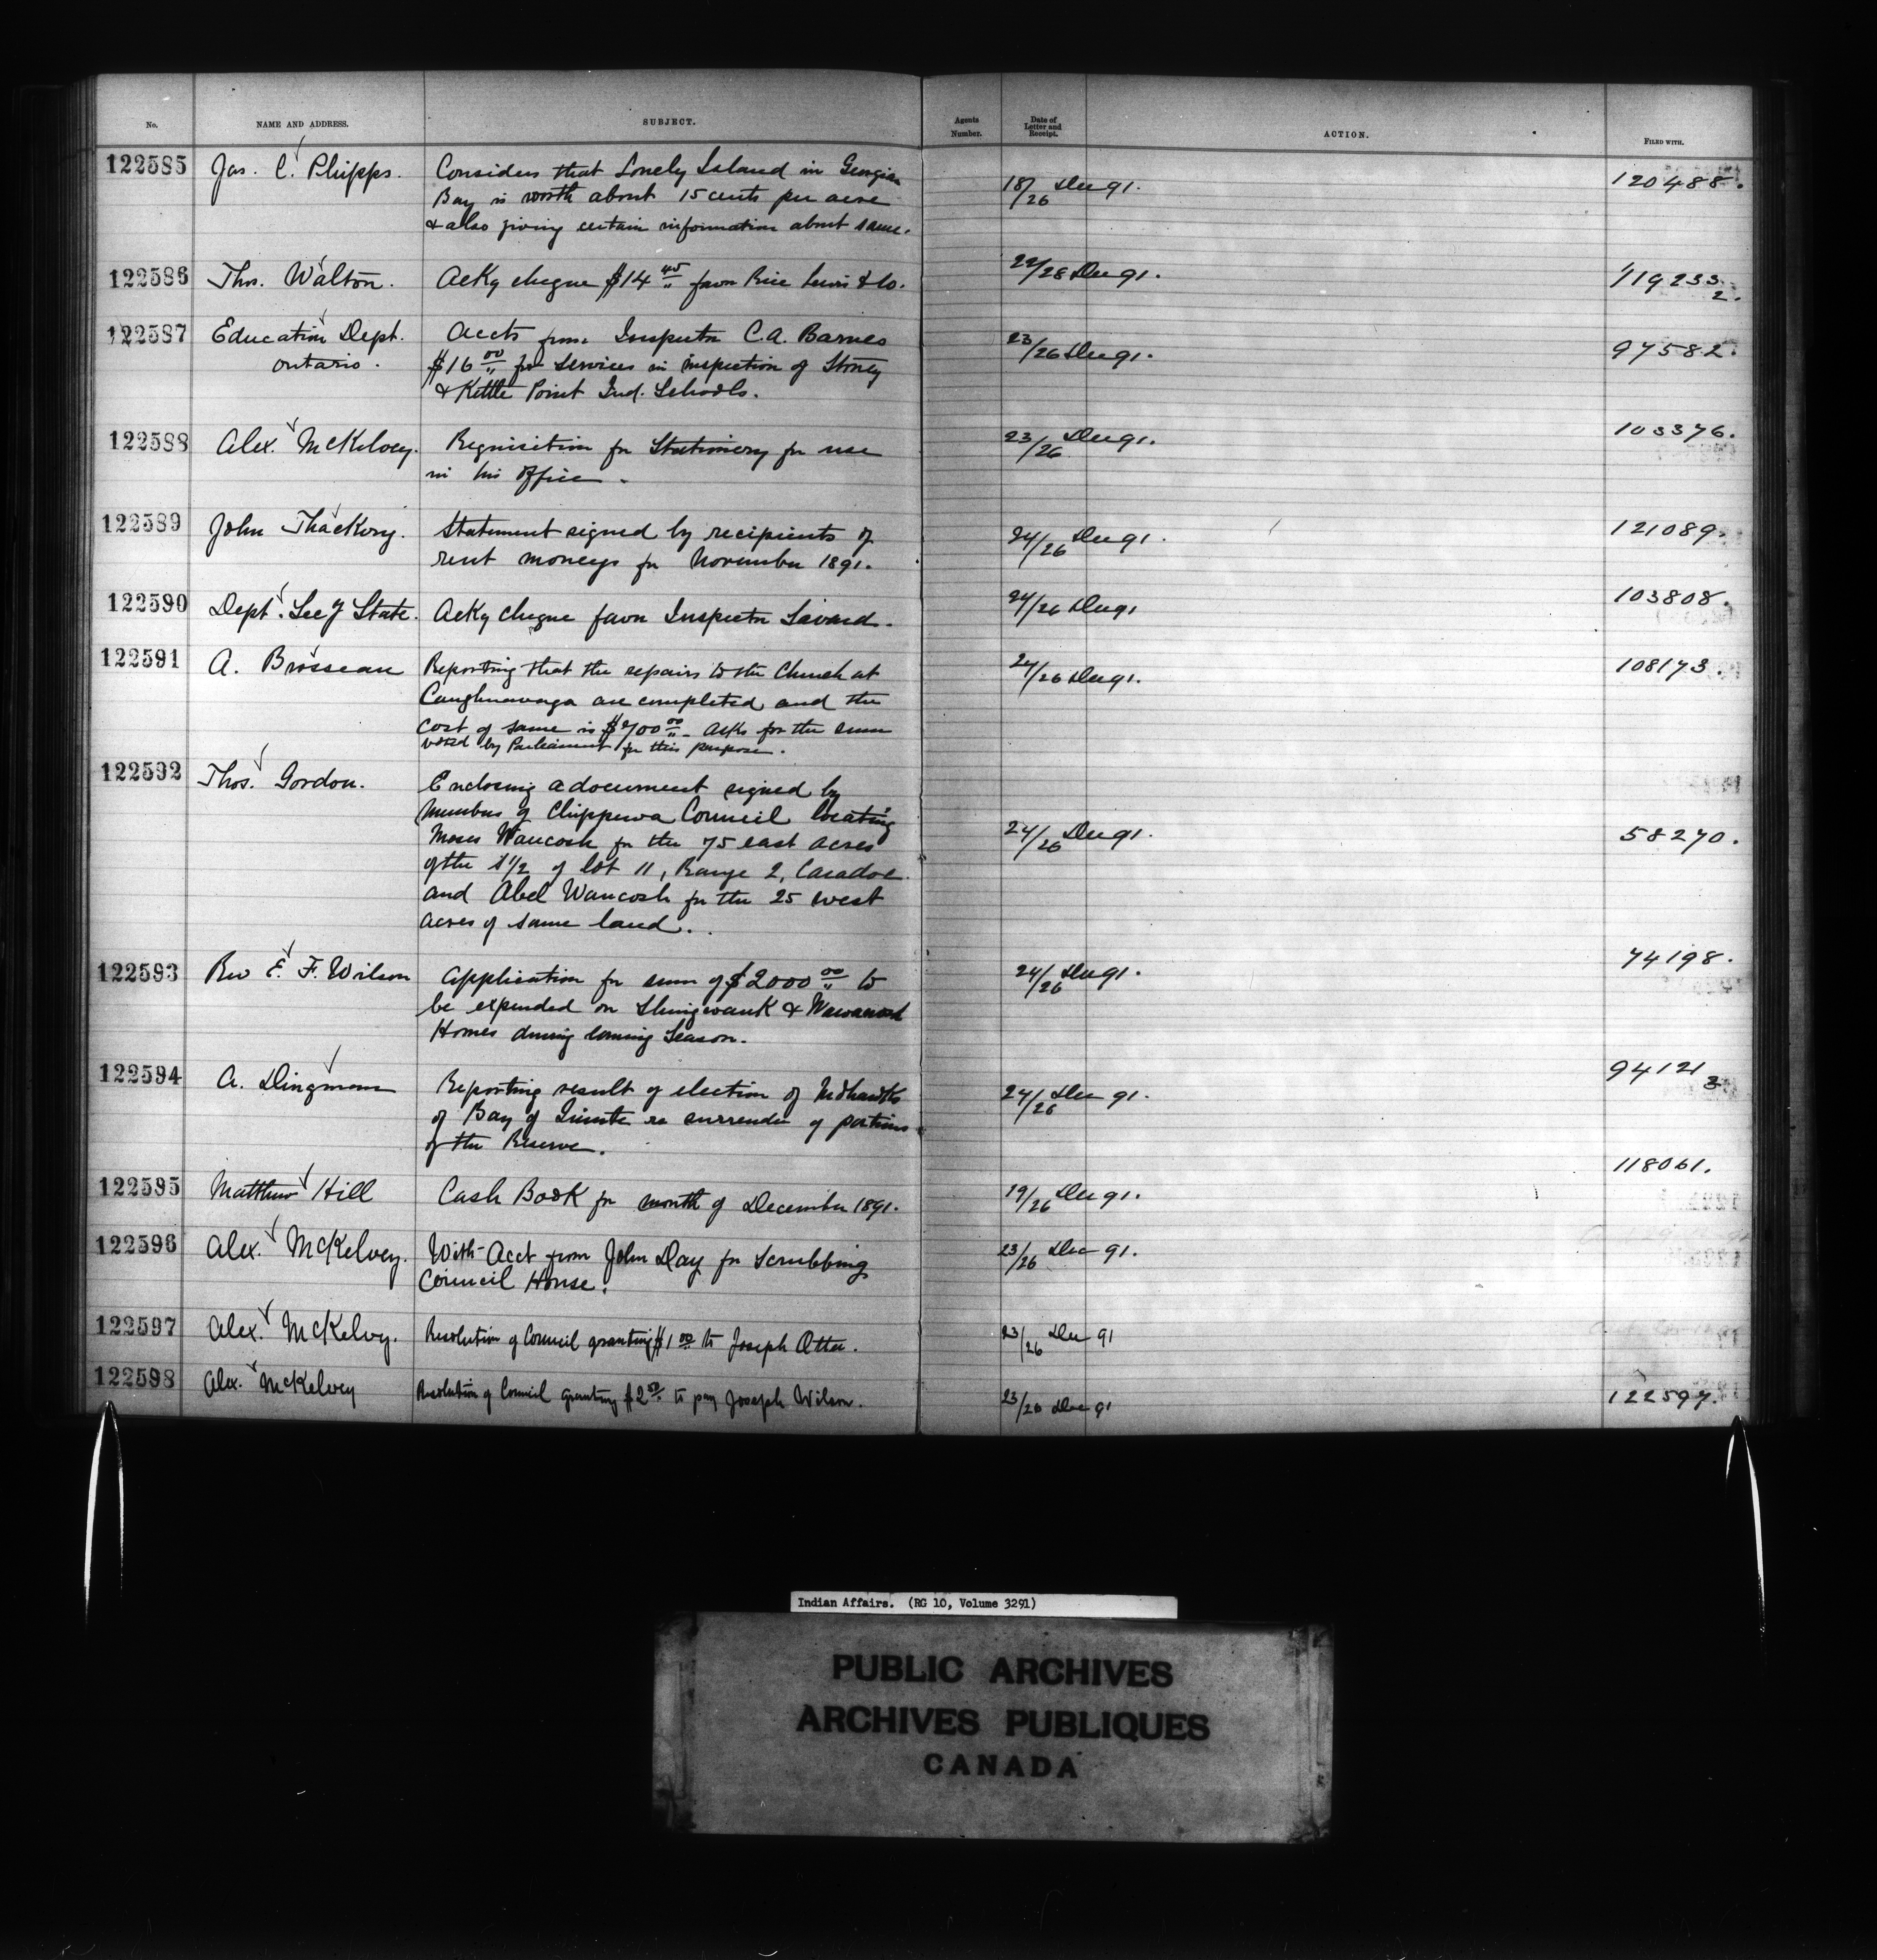 No. NAME AND ADDRESS. SUBJECT. Agents Number. Date of Letter and Receipt. ACTION. FILED WITH.
122585 Jas. C. Phipps. Considers that Lonely Island in Georgian 18/26 Dec 91. 120488.
Bay is worth about 15 cents per acre
& also giving certain information about same.
122586 Thos. Walton. Ackg cheque $14 45 favor Rice Lewis & Co. 22/28 Dec 91. 119233 2.
122587 Education Dept. Accts from Inspector C.A. Barnes 23/26 Dec 91. 97582.
Ontario. $16 00 for services in inspection of Stoney
& Kettle Point Ind. Schools.
122588 Alex. McKelvey. Requisition for Stationery for use 23/26 Dec 91. 103376.
in his office.
122589 John Thackery. Statement signed by recipients of 24/26 Dec 91. 121089.
rent moneys for November 1891.
122590 Dept. Secy State. Ackg cheque favor Inspector Savard. 24/26 Dec 91 103808.
122591 A. Brosseau Reporting that the repairs to the Church at 24/26 Dec 91. 108173.
Caughnawaga are completed and the
cost of same is $700 00. Asks for the sum
voted by Parliament for this purpose.
122592 Thos. Gordon. Enclosing a document signed by
Members of Chippewa Council locating
Moses Waucosh for the 75 east acres 24/26 Dec 91. 58270.
of the S 1/2 of lot 11, Range 2, Caradoc
and Abel Waucosh for the 25 west
acres of same land.
122593 Rev E. F. Wilson Application for sum of $2000 00 to 24/26 Dec 91. 74198.
be expended on Shingwauk & Wawanosh
Homes during coming Season.
122594 A. Dingman Reporting result of election of Mohawks 24/26 Dec 91. 94121 3
of Bay of Quinte re surrender of portions
of the Reserve.
122595 Matthew Hill Cash Book for month of December 1891. 19/26 Dec 91. 118061.
122596 Alex. McKelvey. With Acct from John Day for Scrubbing 23/26 Dec 91.
Council House.
122597 Alex. McKelvy. Resolution of Council granting $1 00 to Joseph Otter. 23/26 Dec 91
122598 Alex. McKelvey Resolution of Council granting $2 50 to pay Joseph Wilson. 23/26 Dec 91 122597.
Indian Affairs. (RG 10, Volume 3291)
PUBLIC ARCHIVES
ARCHIVES PUBLIQUES
CANADA